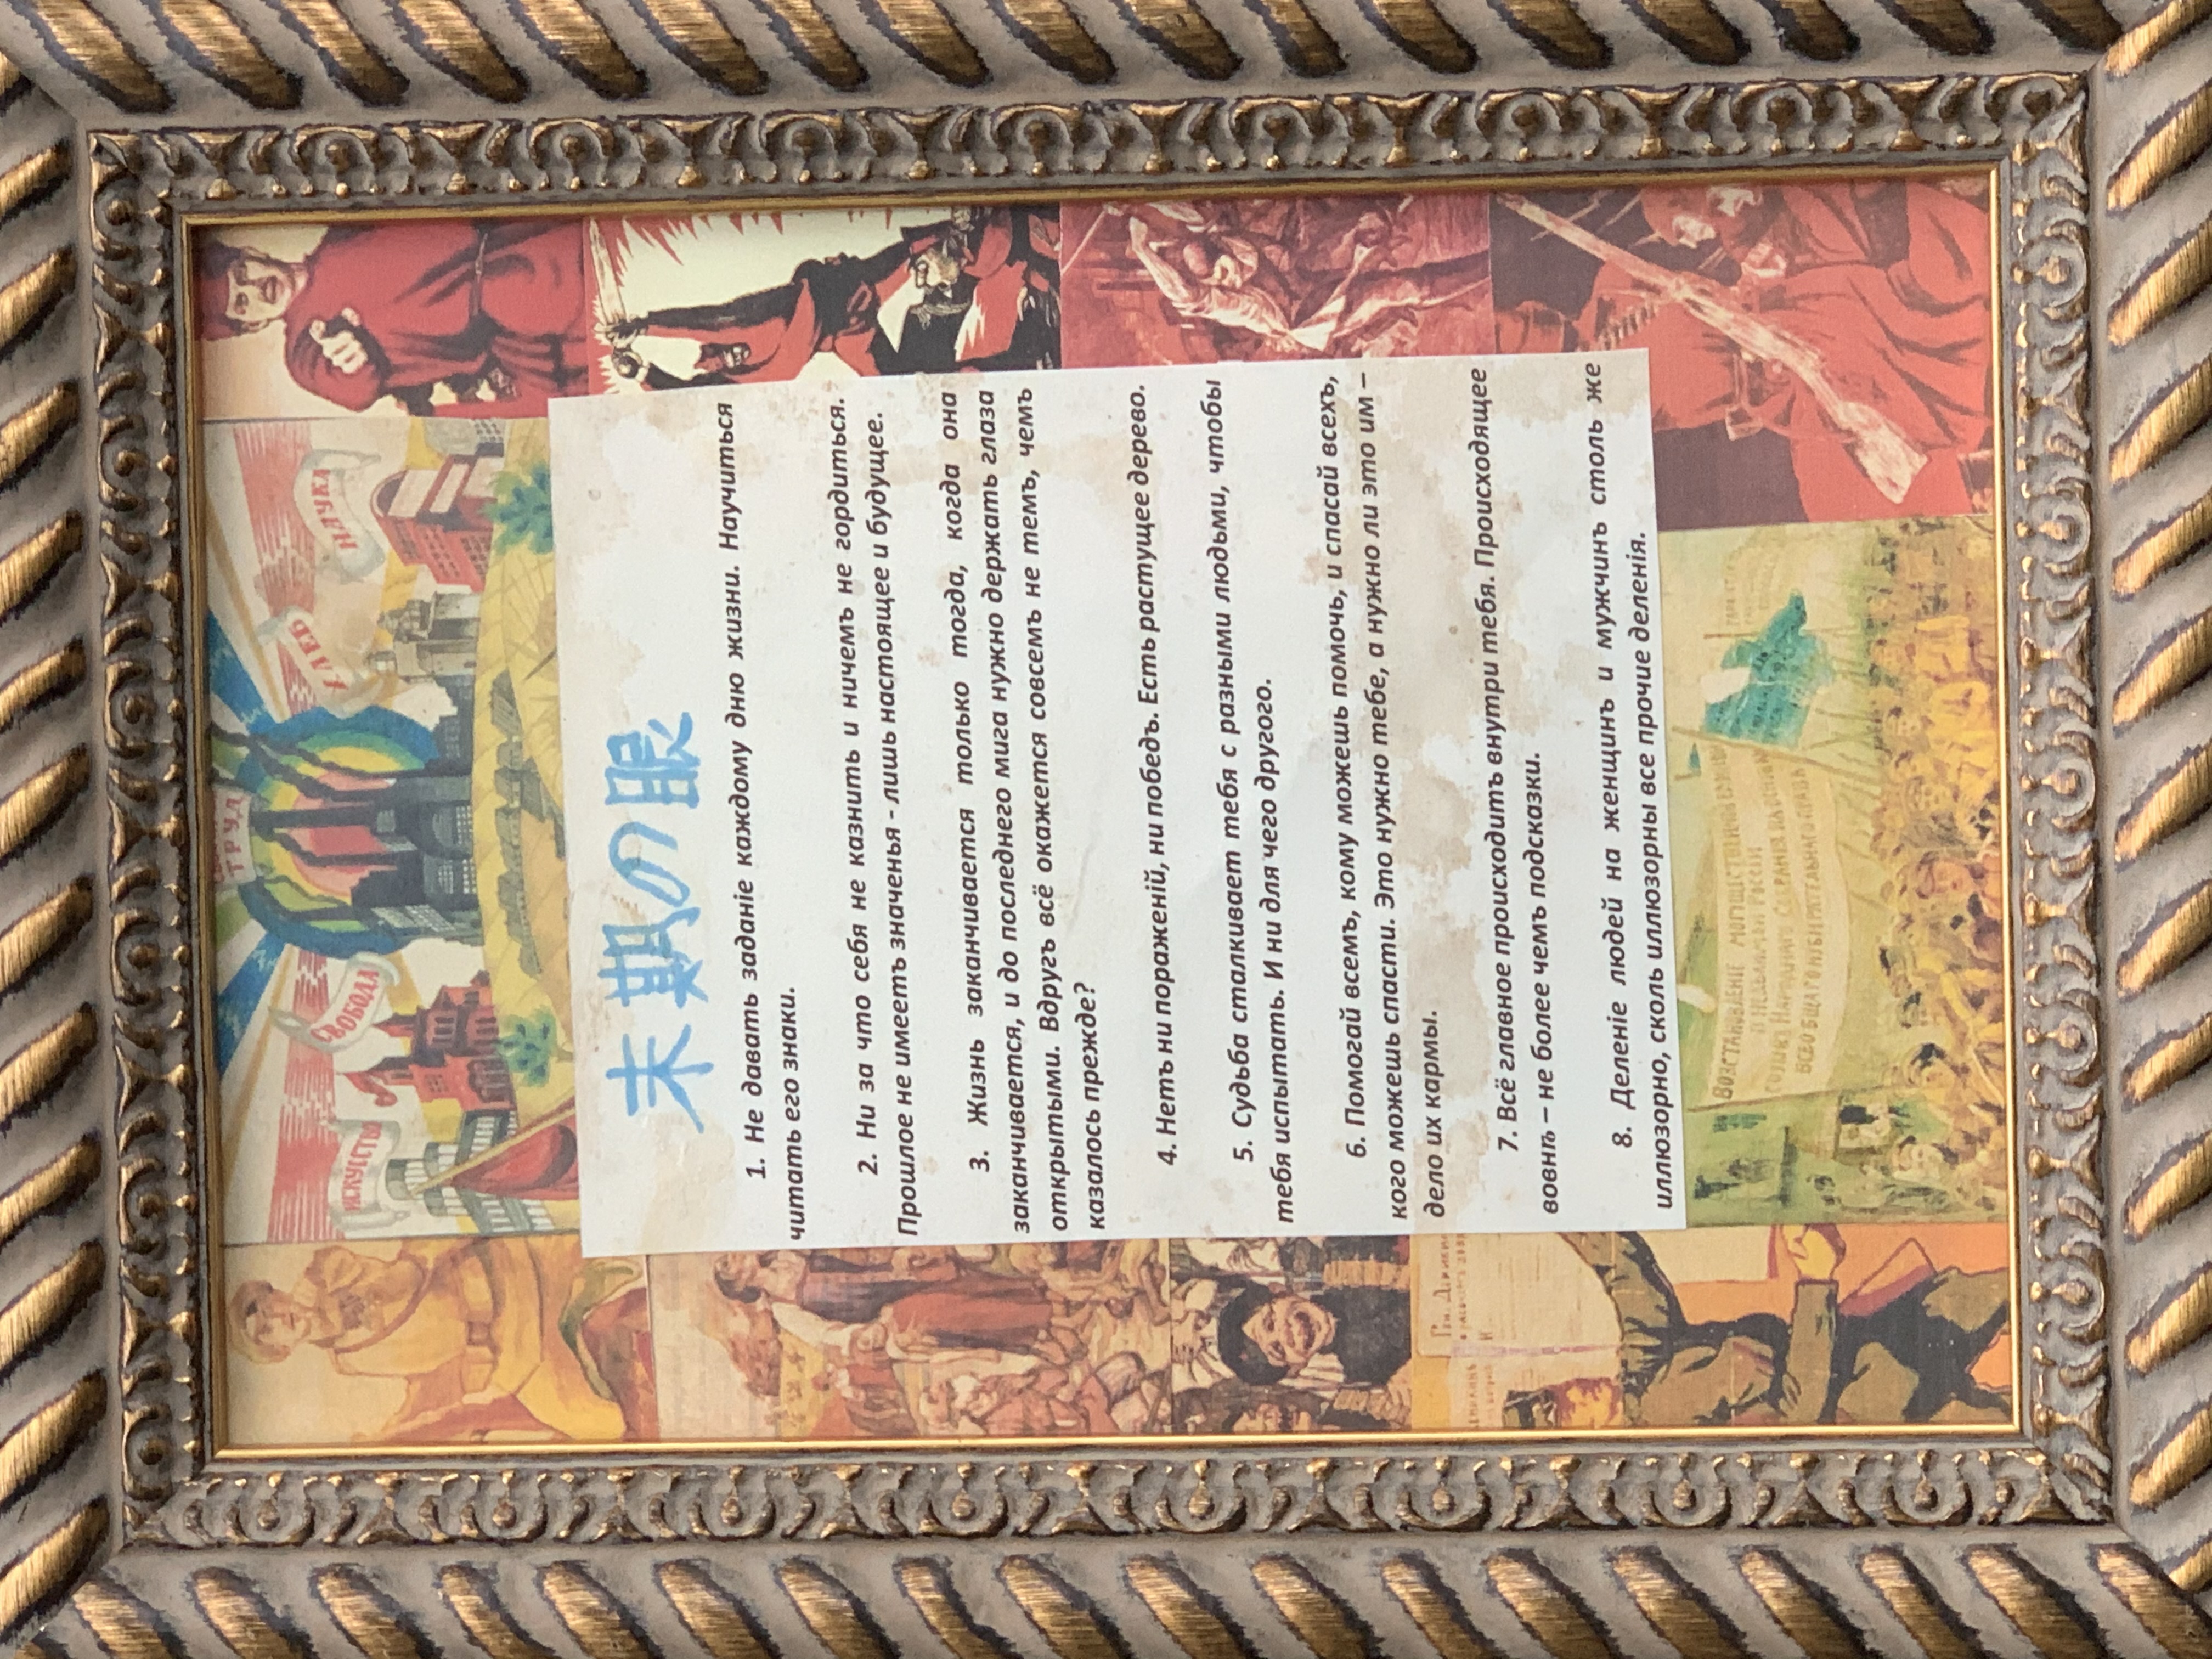 ТРУД
ИСКУССТВО
СВОБОДА
ХЛЕБ
НАУКА
末期の眼
1. Не давать заданіе каждому дню жизни. Научиться
читать его знаки.
2. Ни за что себя не казнить и ничемъ не гордиться.
Прошлое не имеетъ значенья - лишь настоящее и будущее.
3. Жизнь заканчивается только тогда, когда она
заканчивается, и до последнего мига нужно держать глаза
открытыми. Вдругъ всё окажется совсемъ не темъ, чемъ
казалось прежде?
4. Нетъ ни пораженій, ни победъ. Есть растущее дерево.
5. Судьба сталкиваетъ тебя с разными людьми, чтобы
тебя испытать. И ни для чего другого.
6. Помогай всемъ, кому можешь помочь, и спасай всехъ,
кого можешь спасти. Это нужно тебе, а нужно ли это им –
дело их кармы.
7. Всё главное происходитъ внутри тебя. Происходящее
вовнѣ – не более чемъ подсказки.
8. Деленіе людей на женщинъ и мужчинъ столь же
иллюзорно, сколь иллюзорны все прочие деленія.
ВОЗСТАНОВЛЕНІЕ МОГУЩЕСТВЕННОЙ
И НЕДѢЛИМОЙ РОССІИ
СОЗЫВЪ НАРОДНАГО СОБРАНІЯ НА ОСНОВѢ
ВСЕОБЩАГО ИЗБИРАТЕЛЬНАГО ПРАВА